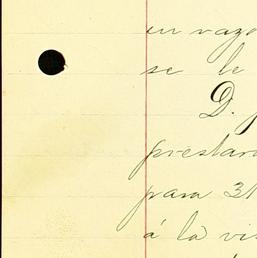 en razo
se le
D.
prestar
para 31
á la vis